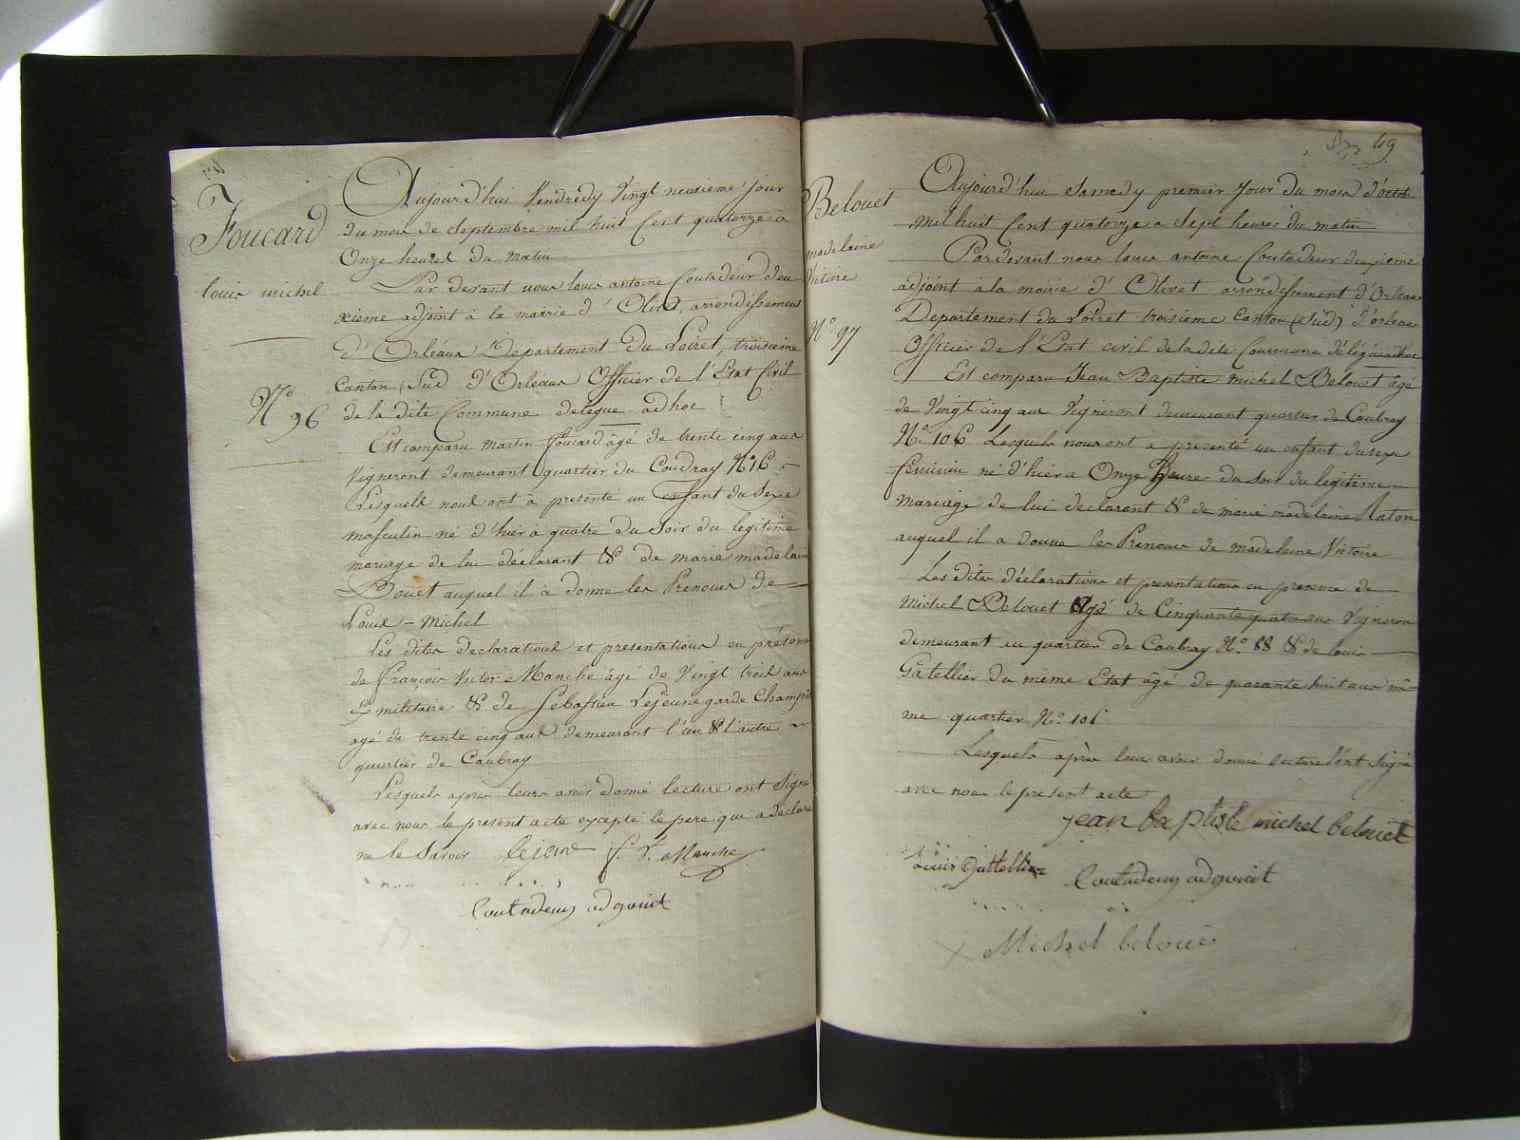 Foucard
louis michel
N° 96
Aujourd'hui Vendredy Vingt neuvieme jour
du mois de Septembre mil huit Cent quatorze à
Onze heures du matin
Par devant nous louis antoine Coutadeur deu
xieme adjoint à la mairie d'Olivet, arrondissement
d'Orléans Département du Loiret, troisieme
Canton (Sud d'Orleans Officier de l'Etat Civil
de la dite Commune délégué ad hoc
Est comparu martin foucard âgé de trente cinq ans
Vigneront demeurant quartier du Coudray N° 16
Lesquels nous ont à presenté un Enfant du Sexe
masculin né d'hier à quatre du Soir du legitime
mariage de lui déclarant & de marie madelai
Bouet auquel il à donne les Prenoms de
Louis - michel
Les dites declarations et presentations en présen
de François Victor Manche âgé de Vingt trois ans
militaire & de Sebastien Lejeune garde Champe
agé de trente cinq ans demeurant l'un & l'autre
quartier de Caubray
Lesquels après leurs avoir donné lecture ont signé
avec nous le present acte excepté le pere qui a declaré
ne le Savoir lejeune f. V. Manche
Coutadeur adgouint
49
Belouet
madelaine
Victoire
N° 97
Aujourd'hui Samedy premier Jour du mois d'octob
mil huit Cent quatorze a Sept heures du matin
Pardevant nous louis antoine Coutadeur deuxieme
adjoint à la mairie d'Olivet arrondissement d'Orléans
Departement du Loiret troisieme Canton (Sud) d'orleans
Officier de l'Etat civil de la dite Commune délégué ad hoc
Est comparu Jean Baptiste michel Belouet âgé
de Vingt cinq ans Vigneront demeurant quartier de Caubray
N° 106 Lesquels nous ont a presenté un enfant du sexe
feminin né d'hier a Onze heures du soir du legitime
mariage de lui declarant & de marie madelaine Raton
auquel il a donné les Prenoms de madelaine Victoire
Les dites déclarations et presentations en presence de
Michel Belouet agé de Cinquante quatre ans Vigneron
demeurant en quartier de Caubray N° 88 & de louis
Gatellier du même Etat âgé de quarante huit ans mê
me quartier N° 106
Lesquels après leur avoir donné lecture l'ont signé
avec nous le present acte
jean baptiste michel belouet
Louis Gattellier Coutadeur adgouint
Michel beloué